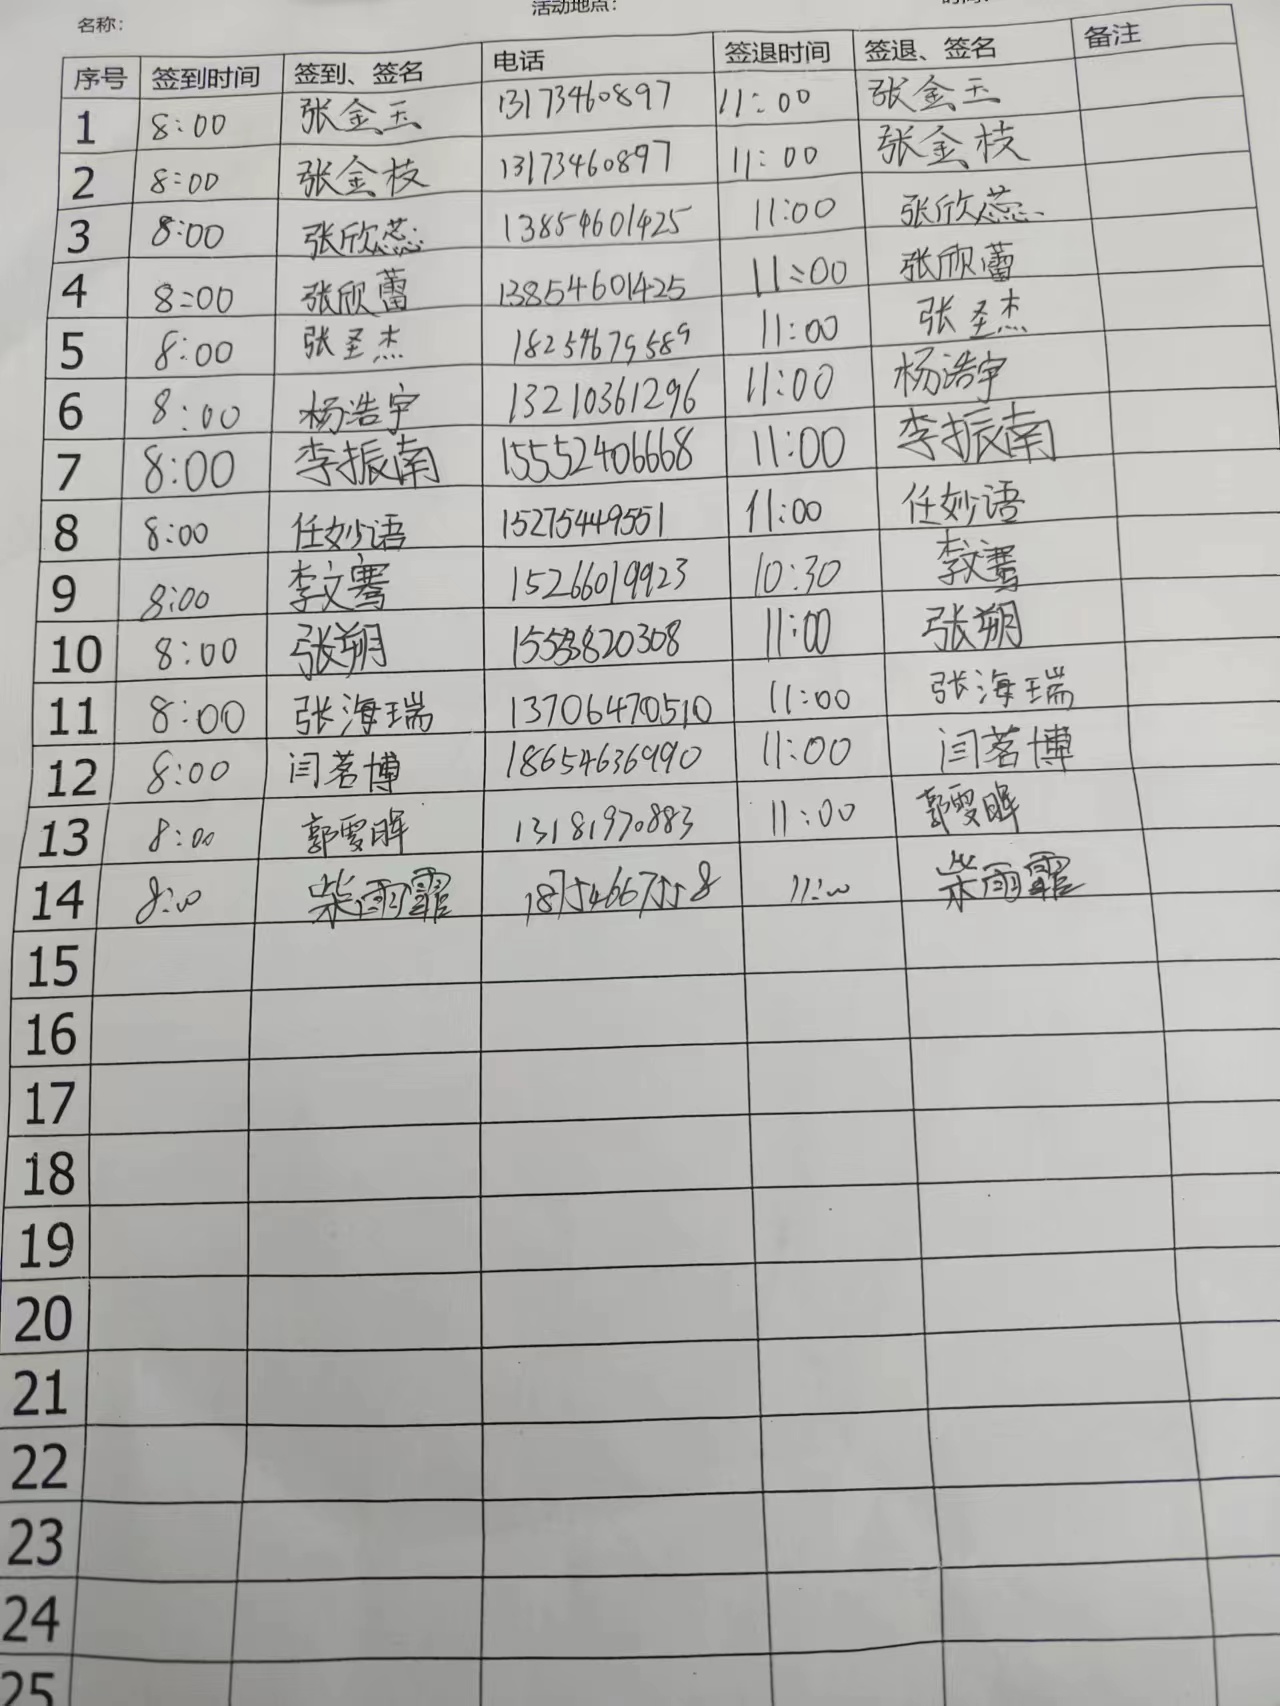 名称: 活动地点:
序号 签到时间 签到、签名 电话 签退时间 签退、签名 备注
1 8:00 张金玉 13173460897 11:00 张金玉
2 8:00 张金枝 13173460897 11:00 张金枝
3 8:00 张欣蕊 13854601425 11:00 张欣蕊
4 8:00 张欣蕾 13854601425 11:00 张欣蕾
5 8:00 张圣杰 18254675589 11:00 张圣杰
6 8:00 杨浩宇 13210361296 11:00 杨浩宇
7 8:00 李振南 15552406668 11:00 李振南
8 8:00 任妙语 15275449551 11:00 任妙语
9 8:00 李文骞 15266019923 10:30 李文骞
10 8:00 张朔 11:00 张朔
11 8:00 张海瑞 13706470510 11:00 张海瑞
12 8:00 闫茗博 18654636990 11:00 闫茗博
13 8:00 郭雯晖 13181970883 11:00 郭雯晖
14 8:00 柴雨霏 18754667558 11:00 柴雨霏
15
16
17
18
19
20
21
22
23
24
25